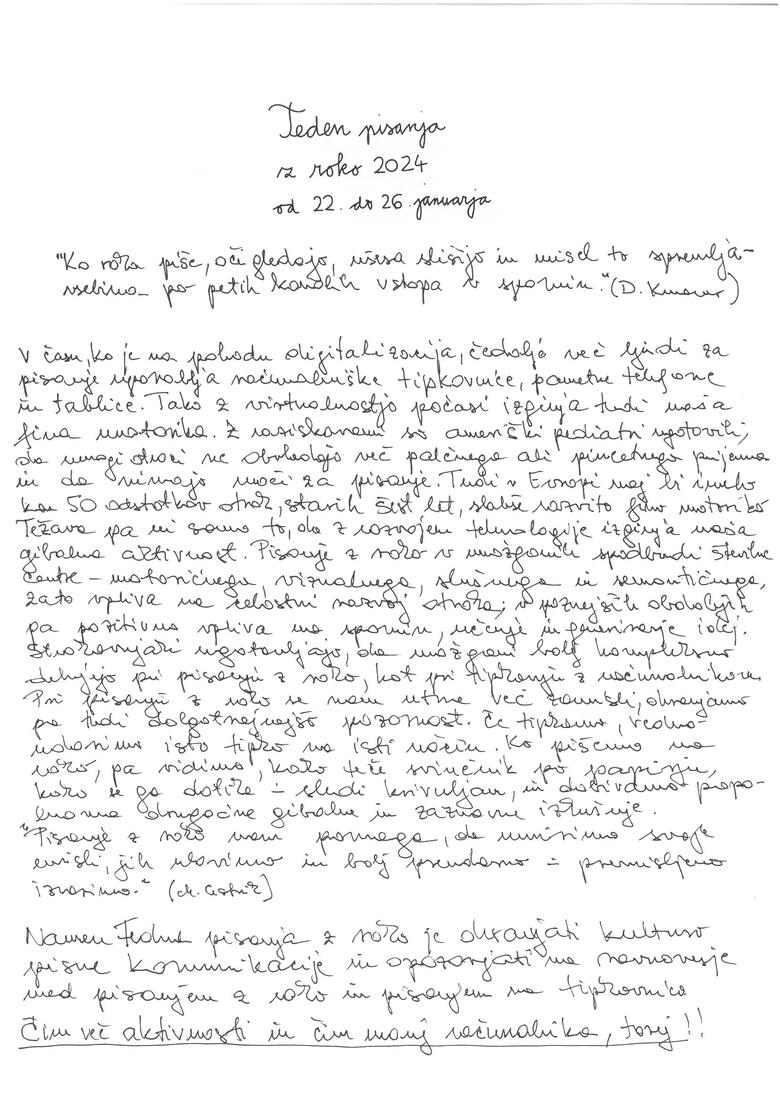 Teden pisanja
z roko 2024
od 22. do 26. januarja
"Ko roka piše, oči gledajo, ušesa slišijo in misel to spremlja-
vsebina po petih kanalih vstopa v spomin." (D.
V času, ko je na pohodu digitalizacija, čedalje več ljudi za
pisanje uporablja računalniške tipkovnice, pametne telefone
in tablice. Tako z virtualnostjo počasi izginja tudi naša
fina motorika. Z raziskavami so ameriški pediatri ugotovili,
da mnogi otroci ne obvladajo več palčnega ali pincetnega prijema
in da nimajo moči za pisanje. Tudi v Evropi naj bi imelo
kar 50 odstotkov otrok, starih šest let, slabše razvito fino motoriko
Težava pa ni samo to, da z razvojem tehnologije izginja naša
gibalna aktivnost. Pisanje z roko v možganih spodbudi številne
centre - motoričnega, vizualnega, slušnega in semantičnega,
zato vpliva na celostni razvoj otroka; v poznejših obdobjih
pa pozitivno vpliva na spomin, učenje in generiranje idej.
Strokovnjaki ugotavljajo, da možgani bolj kompleksno
delujejo pri pisanju z roko, kot pri tipkanju z računalnikom.
Pri pisanju z roko se nam utrne več zamisli, ohranjamo
pa tudi dolgotrajnejšo pozornost. Če tipkamo, vedno
udarimo isto tipko na isti način. Ko pišemo na
roko, pa vidimo, kako teče svinčnik po papirju,
kako se ga dotika - sledi krivuljam, in doživljamo popo-
lnoma drugačne gibalne in zaznavne izkušnje.
"Pisanje z roko nam pomaga, da umirimo svoje
misli, jih ulovimo in bolj preudarno - premišljeno
izrazimo."
Namen Tedna pisanja z roko je ohranjati kulturo
pisne komunikacije in opozarjati na ravnovesje
med pisanjem z roko in pisanjem na tipkovnico.
Čim več aktivnosti in čim manj računalnika, torej!!